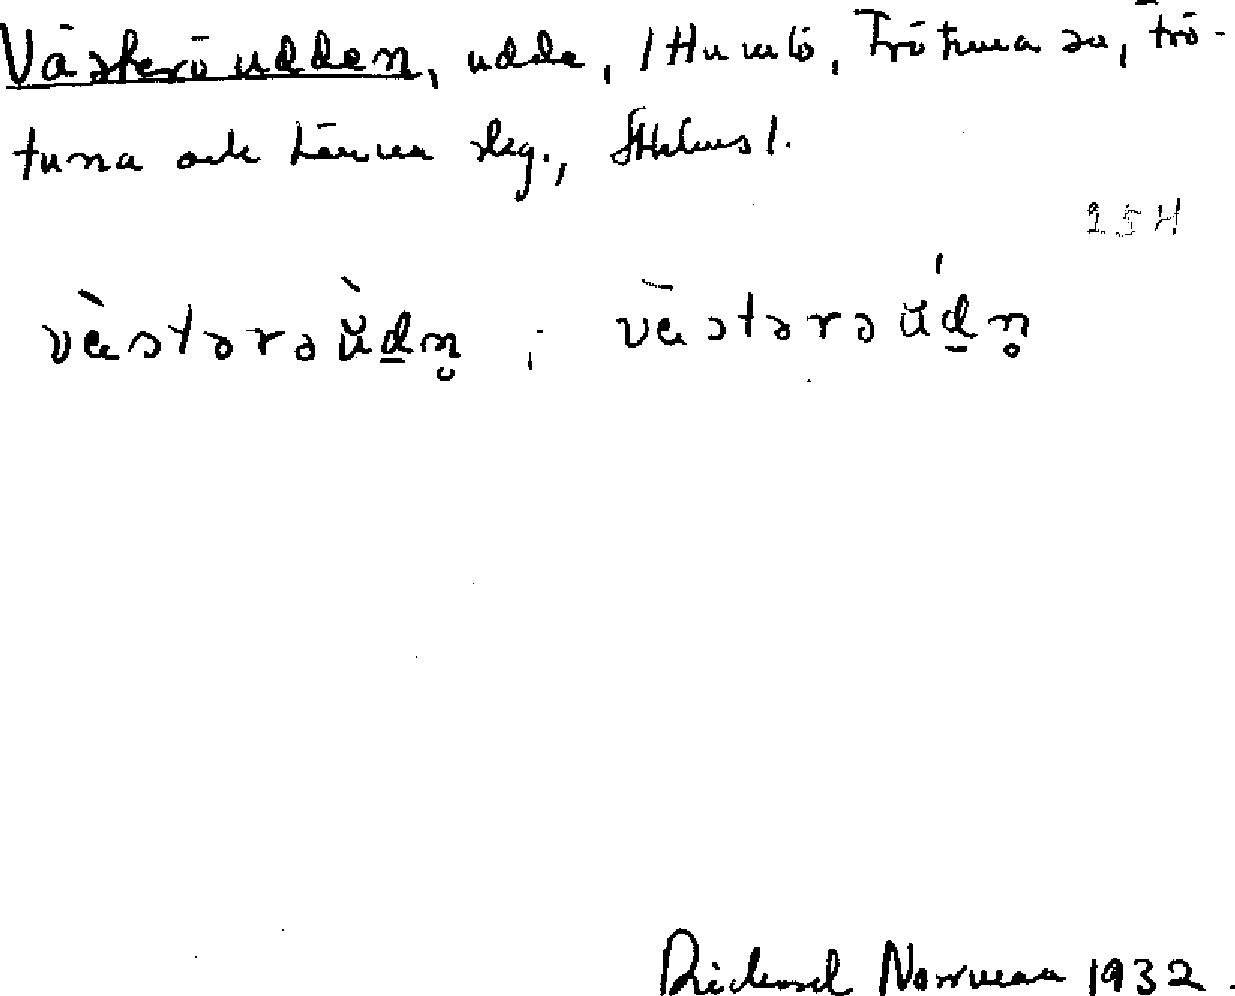 Västerö udden, udde, Humlö, Frötuna sn, Frö-
tuna och Länna skg., Sthlms l.
254
vä̀stərəŭ̀dn̥ ; vä̀stərəŭ́dn̥
Rickard Norrman 1932.